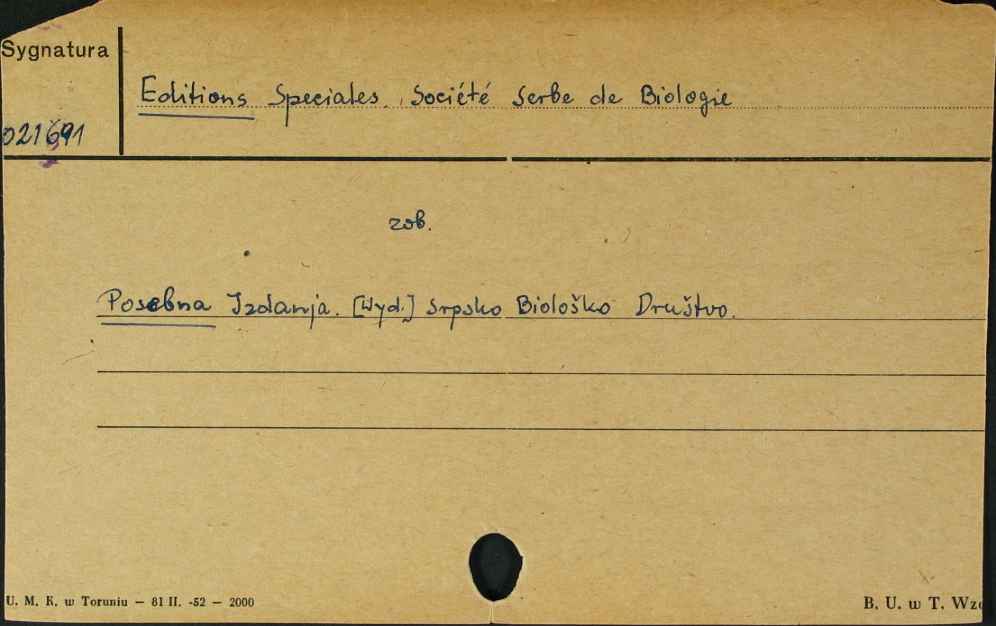 Sygnatura
Editions Speciales, Société Serbe de Biologie
021691
zob.
Posebna Izdanja. [Wyd.] Srpsko Biološko Društvo.
U. M. K. w Toruniu — 81 II. -52 — 2000
B. U. w T. Wzó